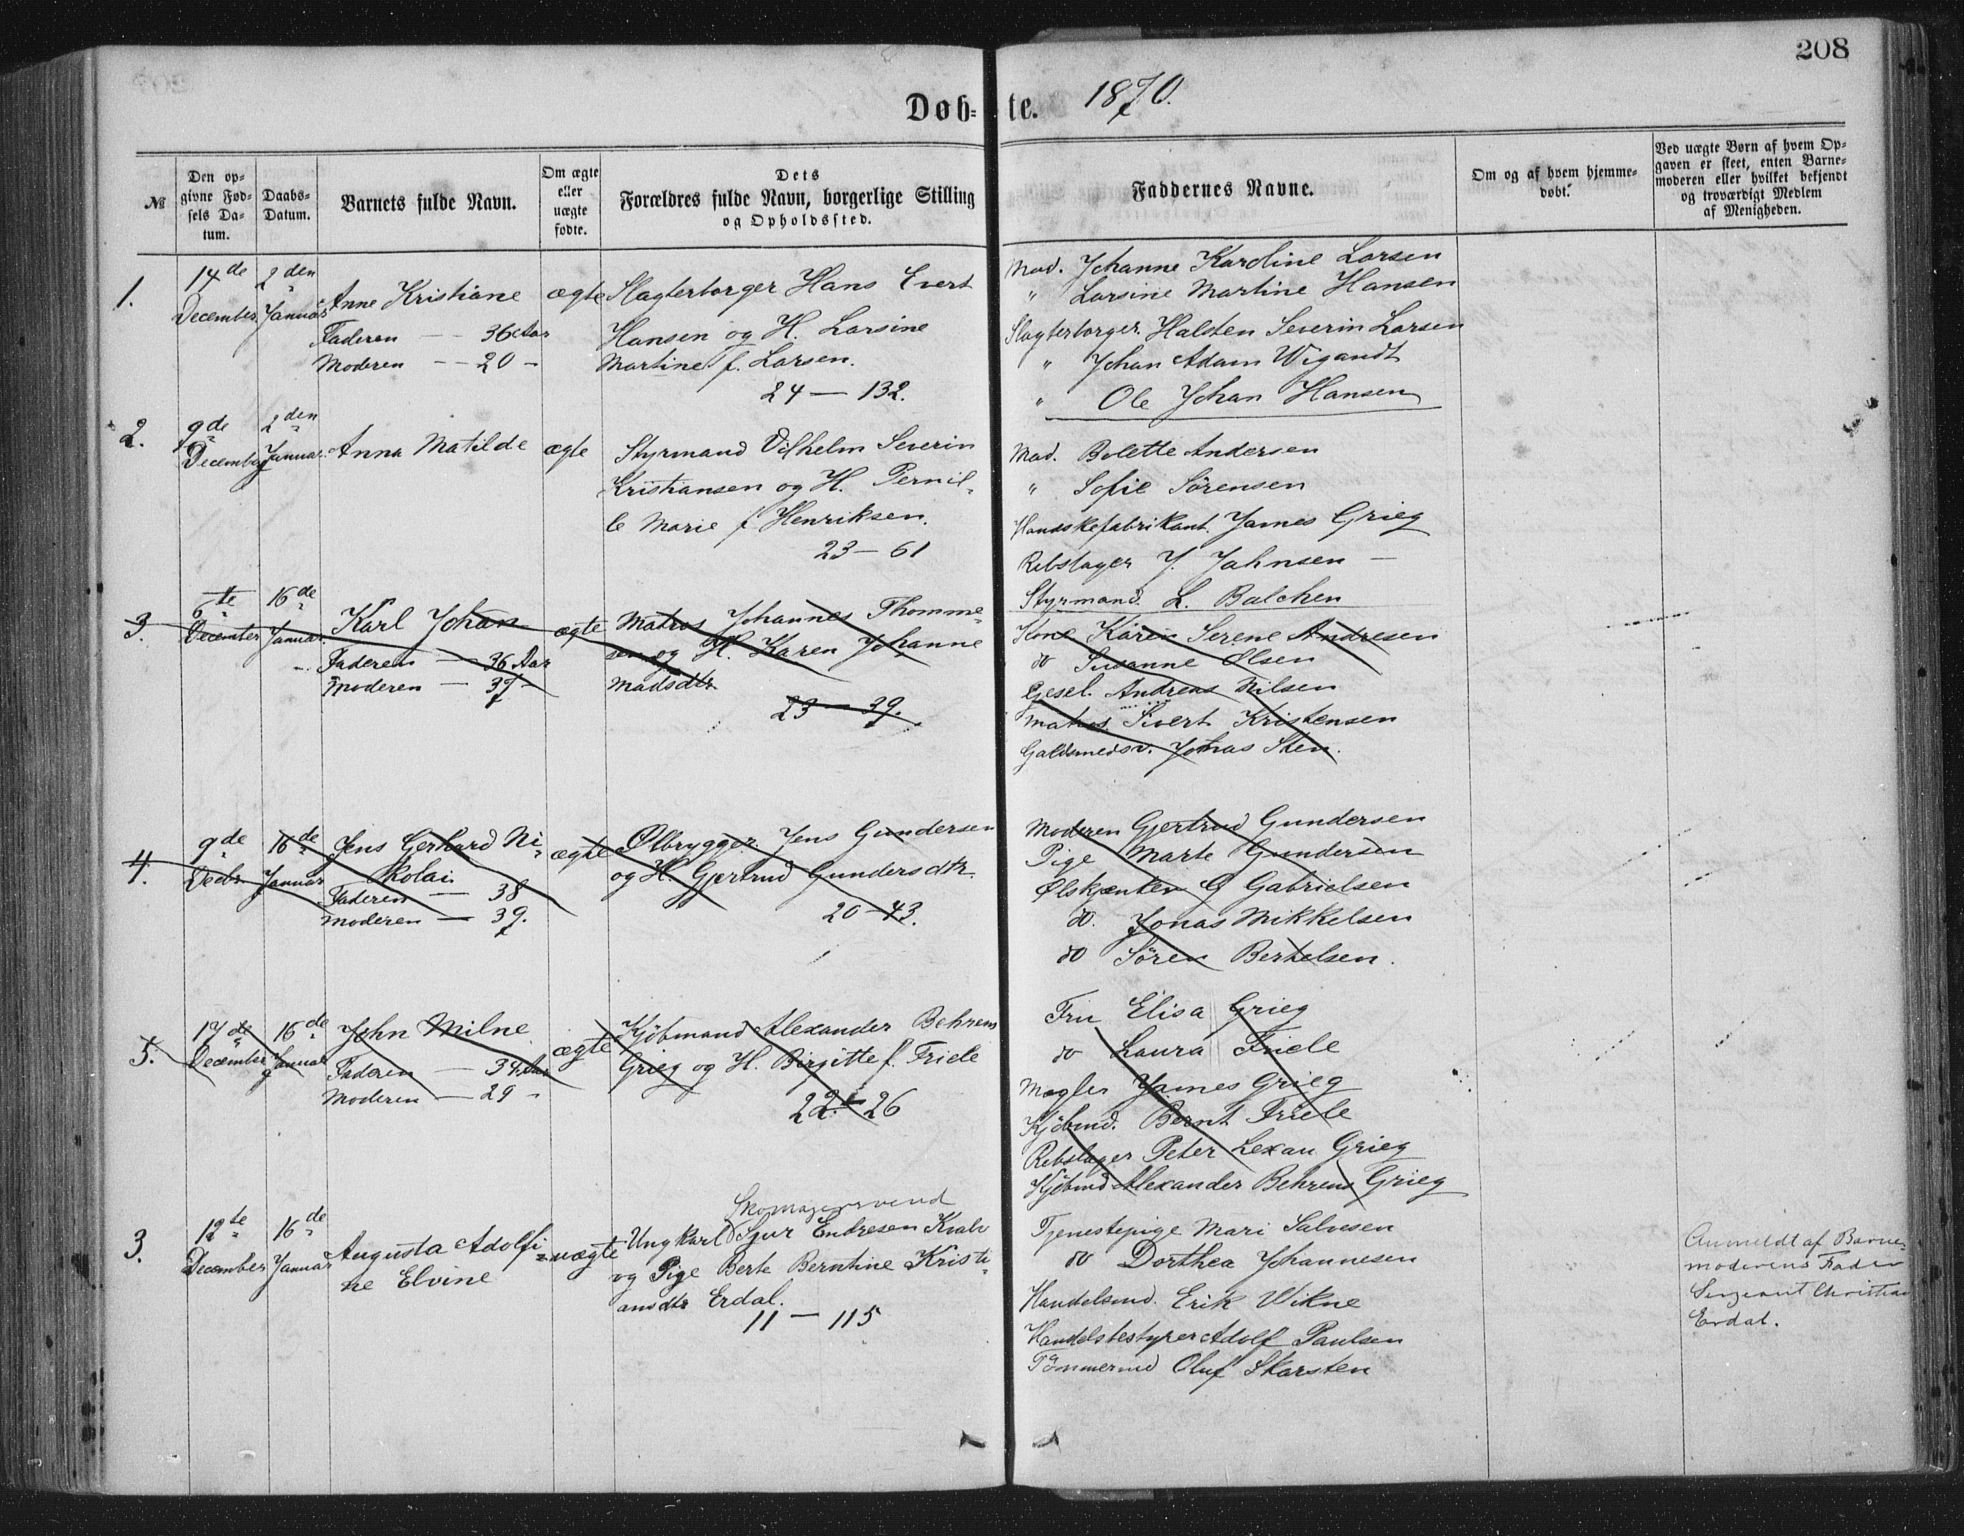 208
Døb-te. 1870.
№
Den op-
givne Fød-
sels Da-
tum.
Daabs-
Datum.
Barnets fulde Navn.
Om ægte
eller
uægte
fødte.
Dets
Forældres fulde Navn, borgerlige Stilling
og Opholdssted.
Faddernes Navne.
Om og af hvem hjemme-
døbt.
Ved uægte Børn af hvem Op-
gaven er skeet, enten Barne-
moderen eller hvilket bekjendt
og troværdigt Medlem
af Menigheden.
1.
14de
December
2den
Januar
Anne Kristiane
Faderen — 36 Aar
Moderen — 20 -
ægte
Slagterborger Hans Evert
Hansen og H. Larsine
Martine f. Larsen.
24 — 132.
Mad. Johanne Karoline Larsen
" Larsine Martine Hansen
Slagterborger Halsten Severin Larsen
" Johan Adam Wigandt
" Ole Johan Hansen
2.
9de
December
2den
Januar
Anna Matilde
ægte
Styrmand Vilhelm Severin
Kristiansen og H. Pernil-
le Marie f Henriksen.
23 — 61
Mad. Bolette Andersen
" Sofie Sörensen
Handskefabrikant. James Grieg
Rebslager J. Jahnsen —
Styrmand. L. Balchen
3.
6te
December
16de
Januar
Karl Johan
Faderen — 36 Aar
Moderen — 37 -
ægte
Matros Johannes Thomme-
sen og H. Karen Johanne
Madsdtr
23 — 39.
Kone Karen Serene Andresen
do Susanne Olsen
Gesel. Andreas Nilsen
Matros Sivert Kristensen
Guldsmedsv. Jonas Sten.
4.
9de
Decbr
16de
Januar
Jens Gerhard Ni-
kolai
Faderen — 38
Moderen — 39.
ægte
Ølbrygger Jens Gundersen
og H. Gjertrud Gundersdtr.
20 — 43.
Moderen Gjertrud Gundersen
Pige Marte Gundersen
Ølskjenker G Gabrielsen
do. Jonas Mikkelsen
do Sören Bertelsen.
5.
17de
December
16de
Januar
John Milne
Faderen — 34 Aar
Moderen — 29 -
ægte
Kjöbmand Alexander Behrens
Grieg og H. Birgitte f. Friele
22 — 26
Fru Elisa Grieg
do Laura Friele
Mægler James Grieg
Kjöbmd. Bernt Friele
Rebslager Peter Lexau Grieg
Kjöbmd Alexander Behrens Grieg
3.
12te
December
16de
Januar
Augusta Adolfi-
ne Elvine
uægte
Skomagersvend
Ungkarl Sjur Endresen Kvale
og Pige Berte Berntine Kristi-
ansdtr Erdal.
11 — 115
Tjenestepige Mari Salvesen
do Dorthea Johannesen
Handelsmd. Erik Vikne
Handelsbestyrer Adolf Paulsen
Tömmermd Oluf Skarsten
Anmeldt af Barne-
moderens Fader
Sergeant Christian
Erdal.